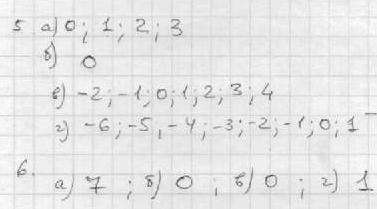 5 а) 0 ; 1 ; 2 ; 3
б) 0
в) -2 ; -1 ; 0 ; 1 ; 2 ; 3 ; 4
г) -6 ; -5 , -4 ; -3 ; -2 ; -1 ; 0 ; 1
6. а) 7 ; б) 0 ; в) 0 ; г) 1